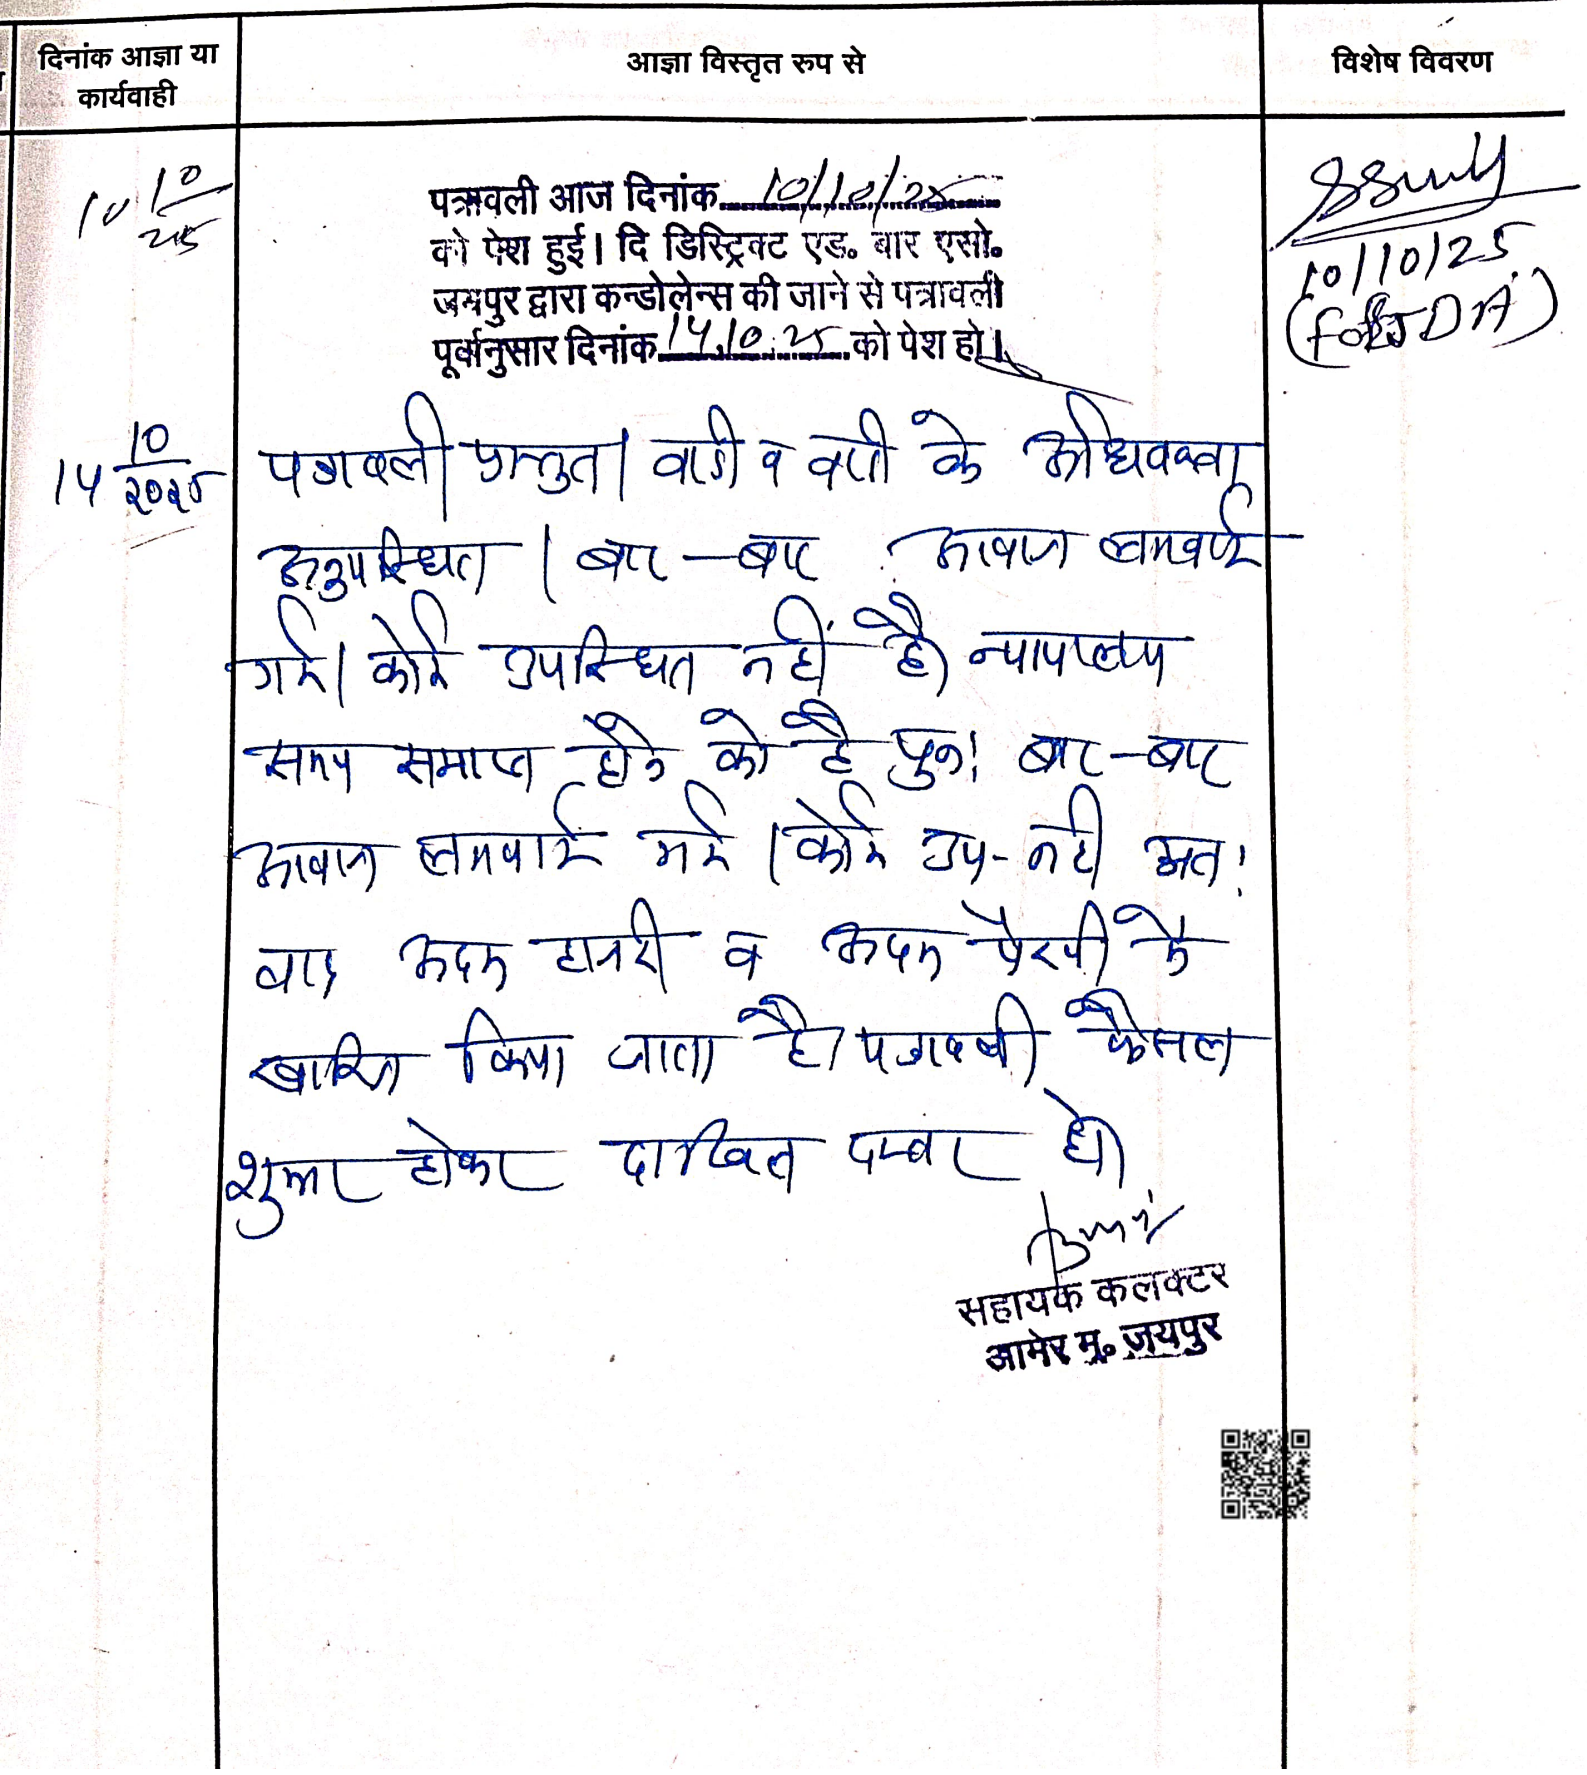 दिनांक आज्ञा या
कार्यवाही
आज्ञा विस्तृत रुप से
विशेष विवरण
10 10/25
पत्रावली आज दिनांक 10/10/25
को पेश हुई। दि डिस्ट्रिक्ट एड. बार एसो.
जयपुर द्वारा कन्डोलेन्स की जाने से पत्रावली
पूर्वानुसार दिनांक 14.10.25 को पेश हो।
10/10/25
14 10/2025
पत्रावली प्रस्तुत। वादी व वादी के अधिवक्ता
अनुपस्थित। बार-बार आवाज लगवाई
गई। कोई उपस्थित नहीं है। न्यायालय
समय समाप्त होने को है पुन: बार-बार
आवाज लगवाई गई। कोई उप- नही अत:
वाद अदम हाजरी व अदम पैरवी में
खारिज किया जाता है। पत्रावली फैसल
शुमार होकर दाखिल दफ्तर हो।
सहायक कलक्टर
आमेर मु. जयपुर